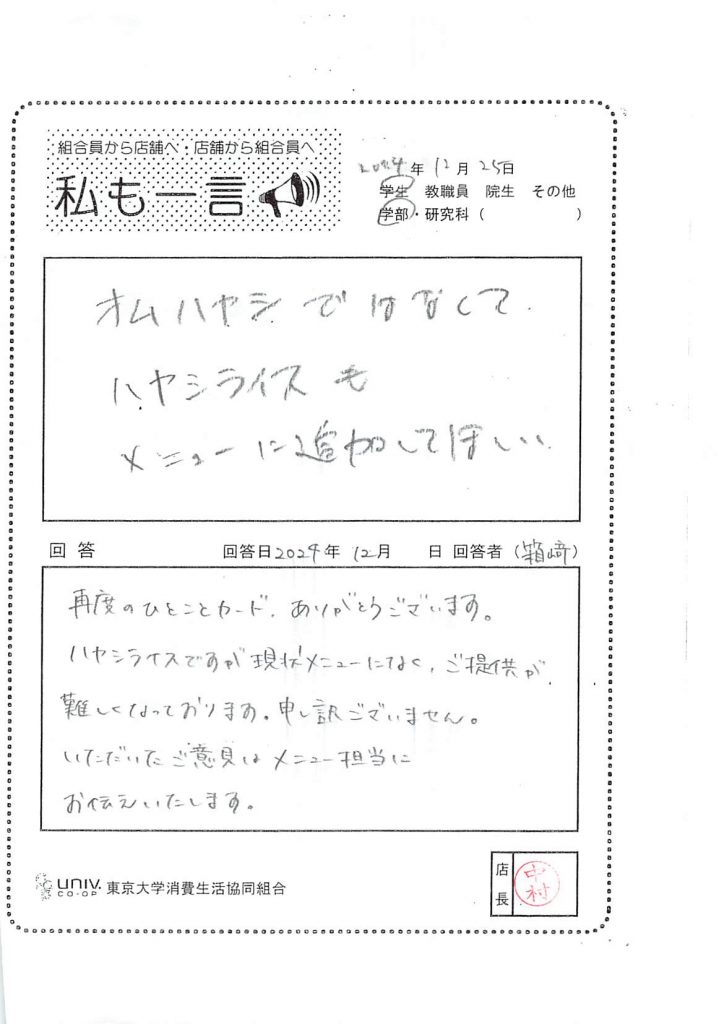 組合員から店舗へ・店舗から組合員へ
私も一言
2024年12月25日
学生 教職員 院生 その他
学部・研究科( )
オムハヤシではなくて、
ハヤシライスも
メニューに追加してほしい。
回答 回答日2024年12月 日 回答者(箱﨑)
再度のひとことカード、ありがとうございます。
ハヤシライスですが現状メニューになく、ご提供が
難しくなっております。申し訳ございません。
いただいたご意見はメニュー担当に
お伝えいたします。
UNIV. CO-OP 東京大学消費生活協同組合
店長 中村